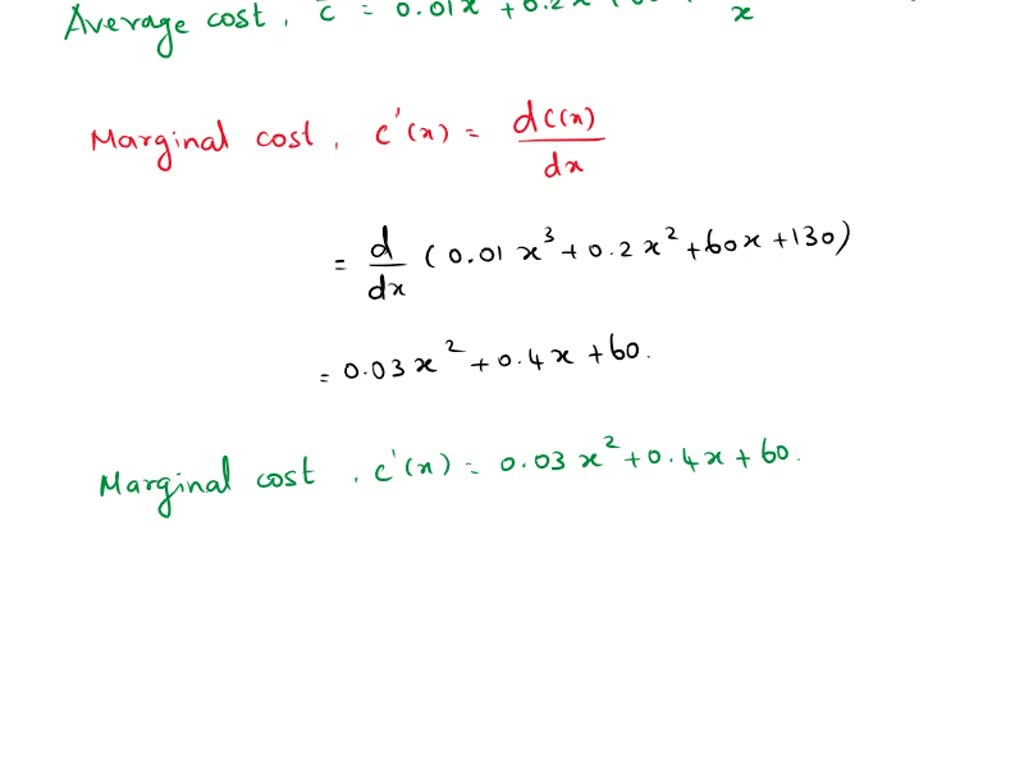 Average cost, c̄ = 0.01x + 0.2x
x
Marginal cost, c'(x) = dC(x)
dx
= d (0.01x³ + 0.2x² + 60x + 130)
dx
= 0.03x² + 0.4x + 60.
Marginal cost, c'(x) = 0.03x² + 0.4x + 60.